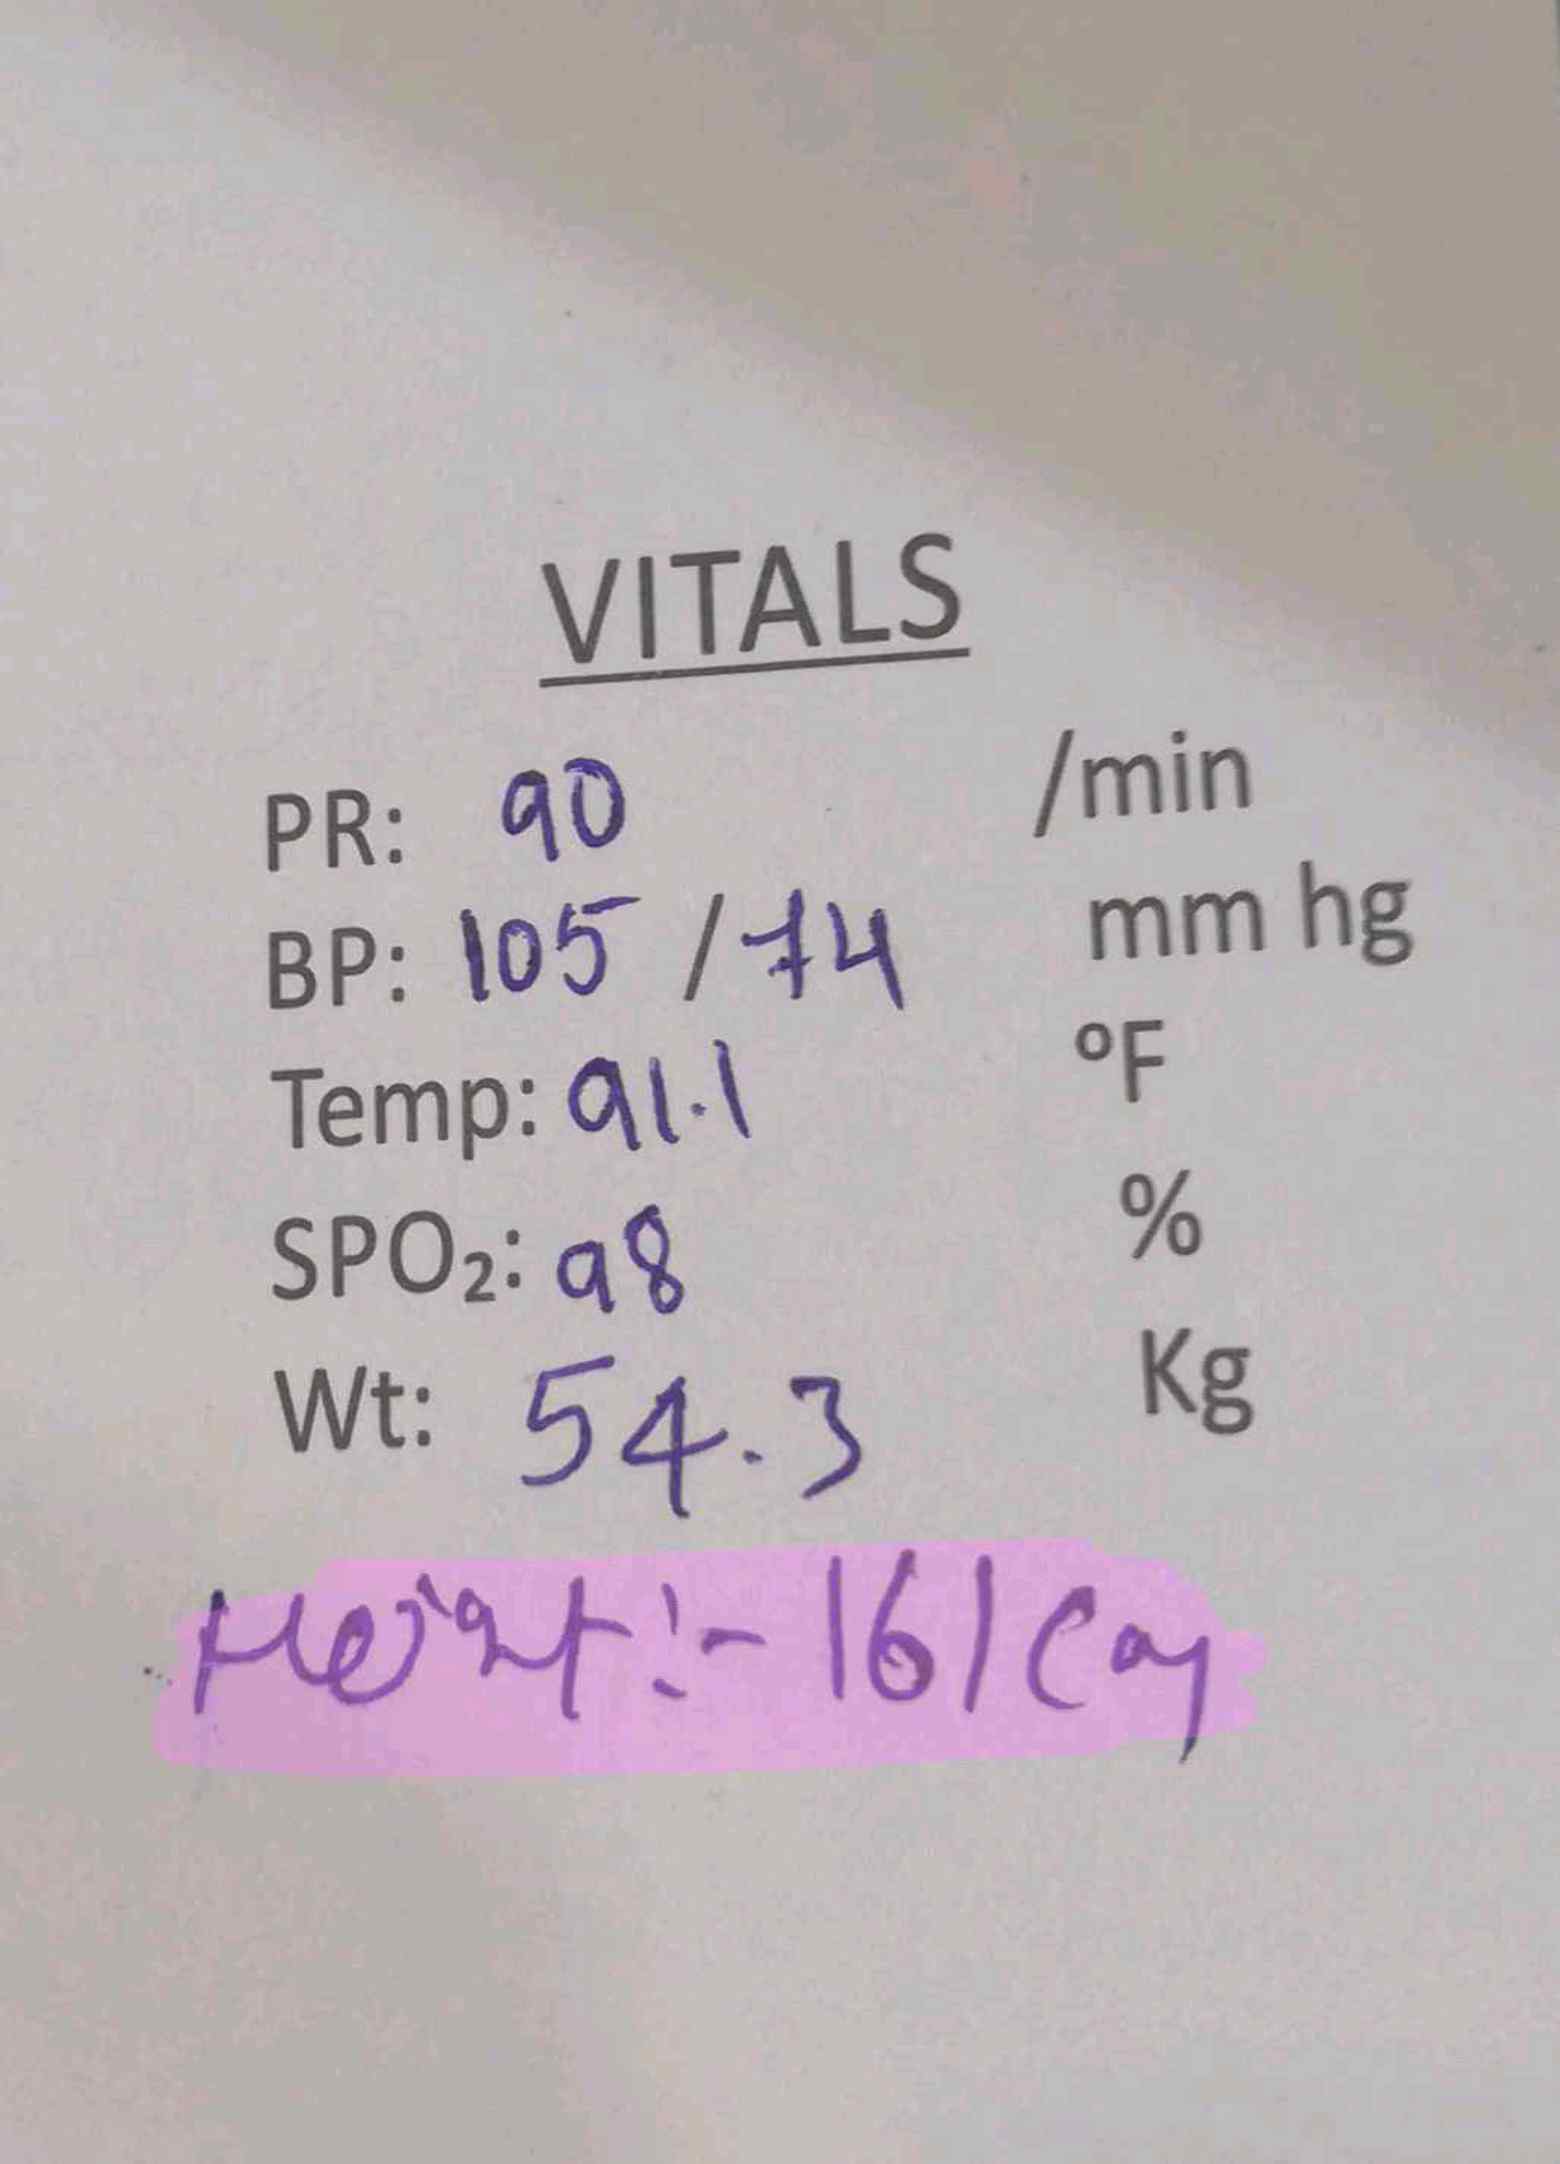 VITALS
PR: 90 /min
BP: 105 / 74 mm hg
Temp: 91.1 °F
SPO₂: 98 %
Wt: 54.3 Kg
Height :- 161 Cm